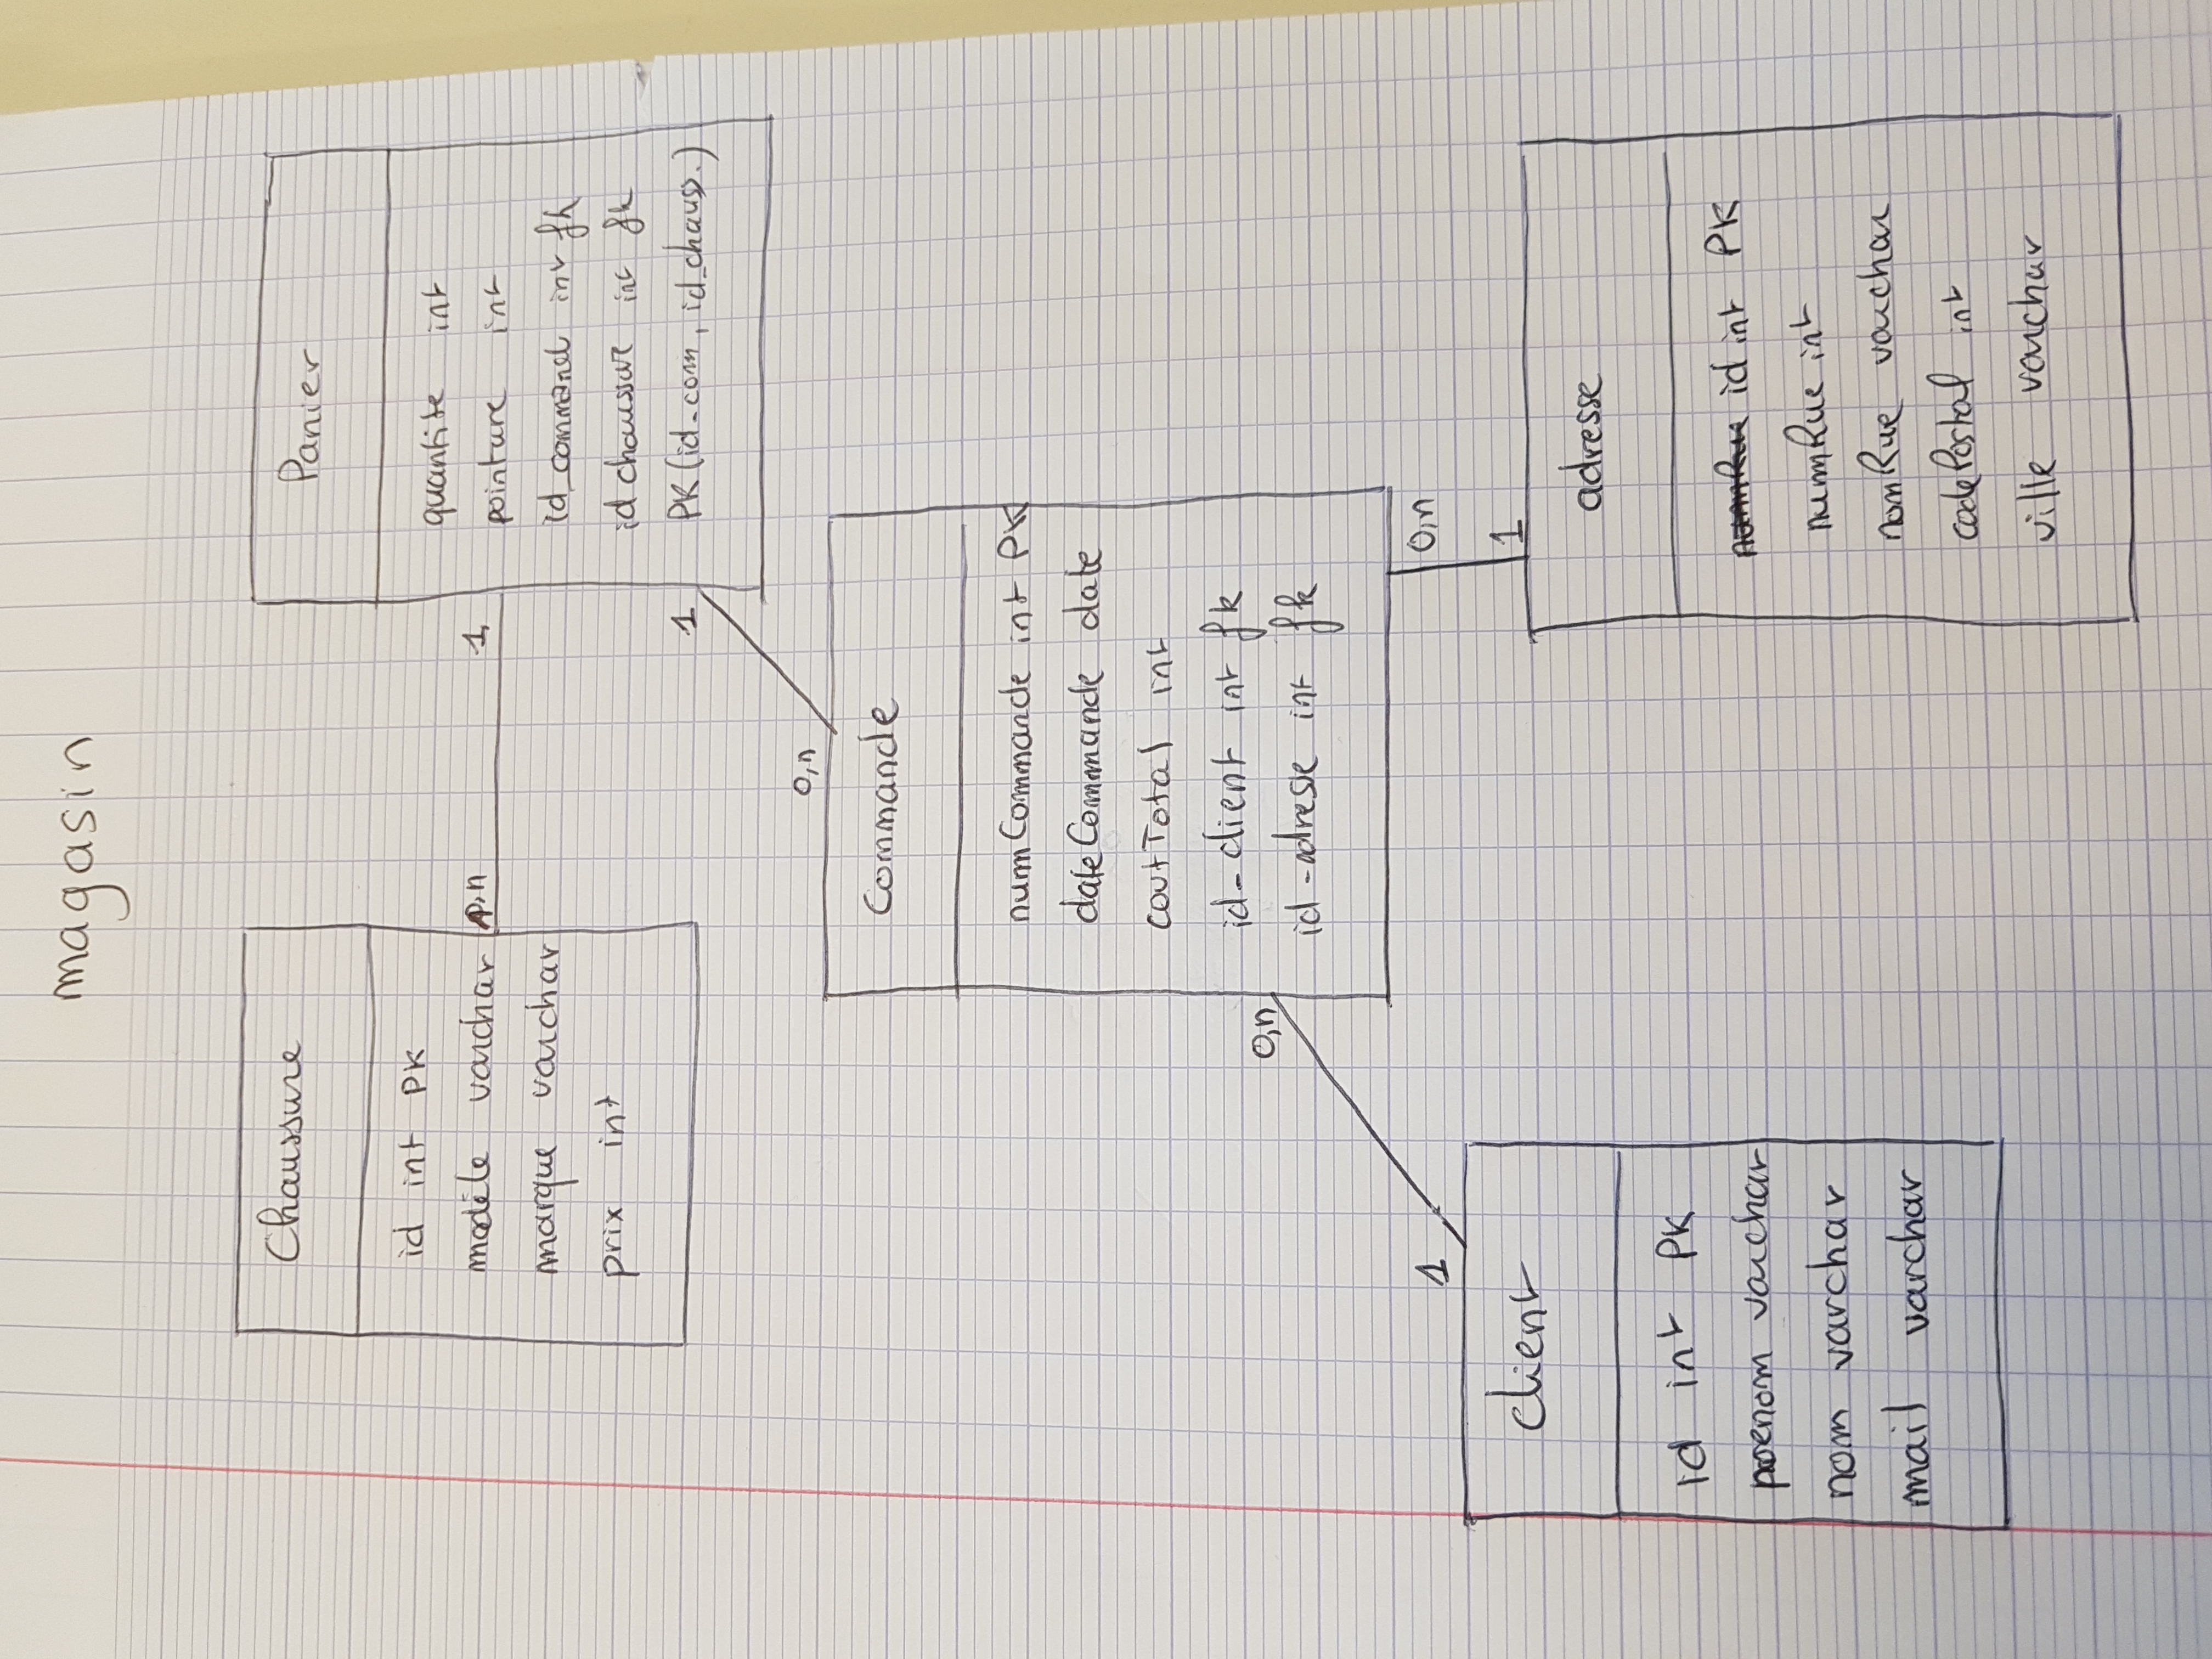 magasin
Chaussure
id int PK
modèle varchar
marque varchar
prix int
,n
1
Panier
quantite int
pointure int
id_command int fk
id chaussure int fk
PK (id-com, id_chauss.)
1
0,n
Commande
numCommande int PK
dateCommande date
coutTotal int
id-client int fk
id-adresse int fk
0,n
1
client
id int PK
prenom varchar
nom varchar
mail varchar
0,n
1
adresse
numRue id int PK
numRue int
nomRue varchar
codePostal int
ville varchar